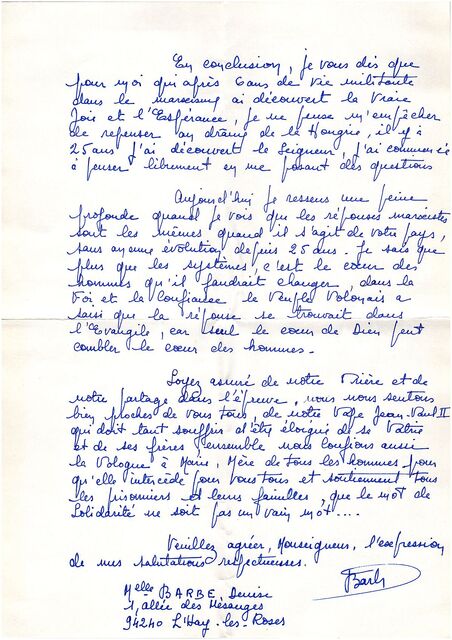 En conclusion, je vous dis que
pour moi qui après 6 ans de vie militante
dans le marxisme ai découvert la Vraie
Joie et l'Espérance, je ne peux m'empêcher
de repenser au drame de la Hongrie, il y a
25 ans j'ai découvert le Seigneur, j'ai commencé
à penser librement en me posant des questions
Aujourd'hui je ressens une peine
profonde quand je vois que les réponses marxistes
sont les mêmes quand il s'agit de votre pays,
sans aucune évolution depuis 25 ans. Je sais que
plus que les systèmes, c'est le cœur des
hommes qu'il faudrait changer, dans la
Foi et la Confiance le Peuple Polonais a
saisi que la réponse se trouvait dans
l'Evangile, car seul le cœur de Dieu peut
combler le cœur des hommes.
Soyez assuré de notre Prière et de
notre partage dans l'épreuve, nous nous sentons
bien proches de vous tous, de notre Pape Jean-Paul II
qui doit tant souffrir d'être éloigné de sa Patrie
et de ses frères, ensemble nous confions aussi
la Pologne à Marie, Mère de tous les hommes pour
qu'elle intercède pour vous tous et soutiennent tous
les prisonniers et leurs familles, que le mot de
Solidarité ne soit pas un vain mot....
Veuillez agréer, Monseigneur, l'expression
de mes salutations respectueuses.
Barbe
Melle BARBE Denise
1, allée des Mésanges
94240 L'Hay-les-Roses